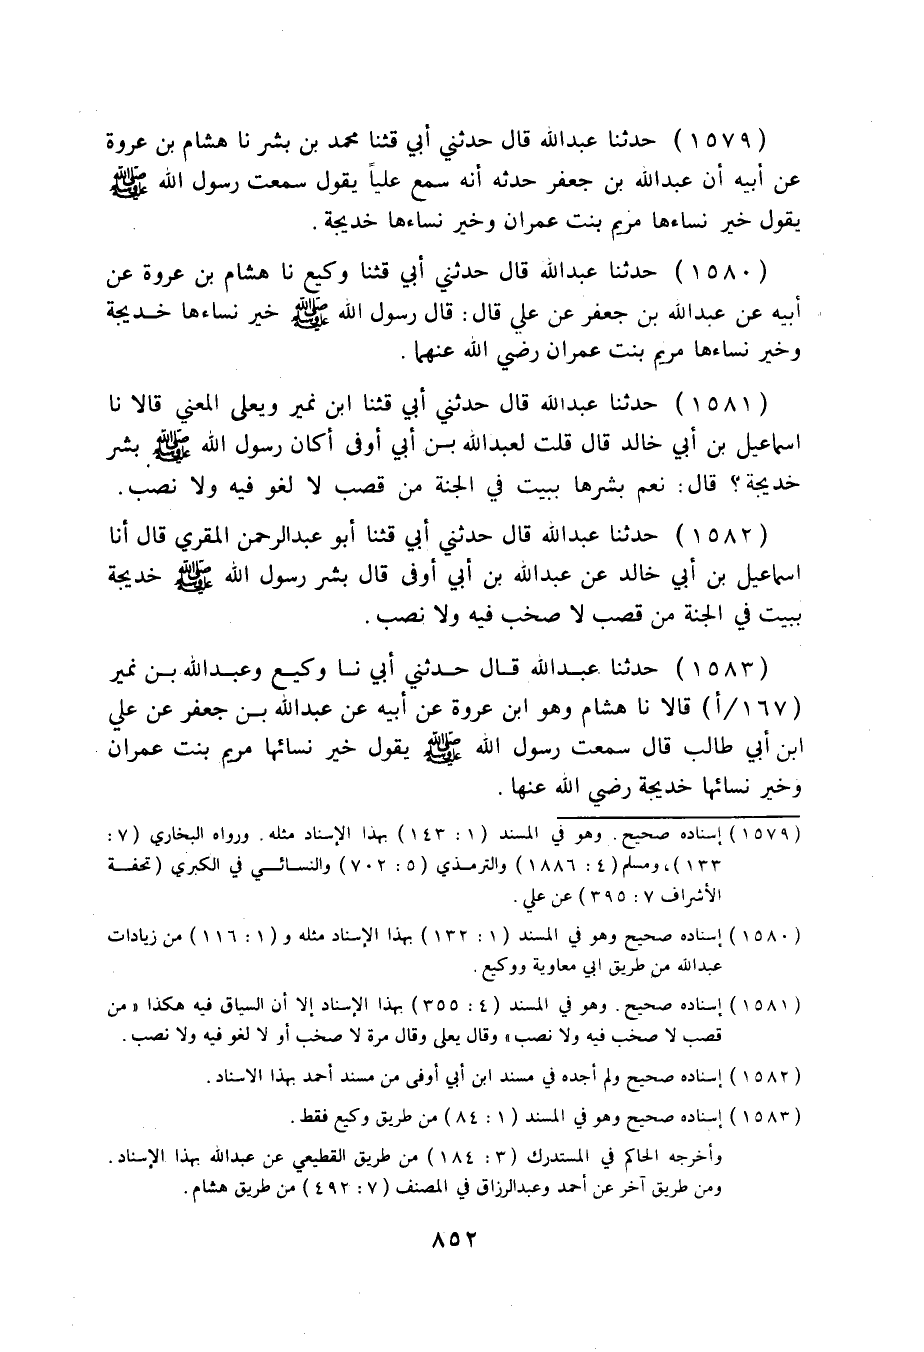 (١٥٧٩) حدثنا عبدالله قال حدثني أبي قثنا محمد بن بشر نا هشام بن عروة
عن أبيه أن عبدالله بن جعفر حدثه أنه سمع علياً يقول سمعت رسول الله ﷺ
يقول خير نساءها مريم بنت عمران وخير نساءها خديجة .
(١٥٨٠) حدثنا عبدالله قال حدثني أبي قثنا وكيع نا هشام بن عروة عن
أبيه عن عبدالله بن جعفر عن علي قال: قال رسول الله ﷺ خير نساءها خديجة
وخير نساءها مريم بنت عمران رضي الله عنهما .
(١٥٨١) حدثنا عبدالله قال حدثني أبي قثنا ابن نمير ويعلى المعني قالا نا
اسماعيل بن أبي خالد قال قلت لعبدالله بن أبي أوفى أكان رسول الله ﷺ بشر
خديجة؟ قال: نعم بشرها ببيت في الجنة من قصب لا لغو فيه ولا نصب.
(١٥٨٢) حدثنا عبدالله قال حدثني أبي قثنا أبو عبدالرحمن المقري قال أنا
اسماعيل بن أبي خالد عن عبدالله بن أبي أوفى قال بشر رسول الله ﷺ خديجة
ببيت في الجنة من قصب لا صخب فيه ولا نصب.
(١٥٨٣) حدثنا عبدالله قال حدثني أبي نا وكيع وعبدالله بن نمير
(١٦٧/أ) قالا نا هشام وهو ابن عروة عن أبيه عن عبدالله بن جعفر عن علي
ابن أبي طالب قال سمعت رسول الله ﷺ يقول خير نسائها مريم بنت عمران
وخير نسائها خديجة رضي الله عنها .
(١٥٧٩) إسناده صحيح. وهو في المسند (١: ١٤٣) بهذا الإسناد مثله. ورواه البخاري (٧:
١٣٣)، ومسلم (٤: ١٨٨٦) والترمذي (٥: ٧٠٢) والنسائي في الكبرى (تحفة
الأشراف ٧: ٣٩٥) عن علي.
(١٥٨٠) إسناده صحيح وهو في المسند (١: ١٣٢) بهذا الإسناد مثله و (١: ١١٦) من زيادات
عبدالله من طريق ابي معاوية ووكيع.
(١٥٨١) إسناده صحيح. وهو في المسند (٤: ٣٥٥) بهذا الإسناد إلا أن السياق فيه هكذا «من
قصب لا صخب فيه ولا نصب» وقال يعلى وقال مرة لا صخب أو لا لغو فيه ولا نصب.
(١٥٨٢) إسناده صحيح ولم أجده في مسند ابن أبي أوفى من مسند أحمد بهذا الاسناد.
(١٥٨٣) إسناده صحيح وهو في المسند (١: ٨٤) من طريق وكيع فقط.
وأخرجه الحاكم في المستدرك (٣: ١٨٤) من طريق القطيعي عن عبدالله بهذا الإسناد.
ومن طريق آخر عن أحمد وعبدالرزاق في المصنف (٧: ٤٩٢) من طريق هشام.
٨٥٢